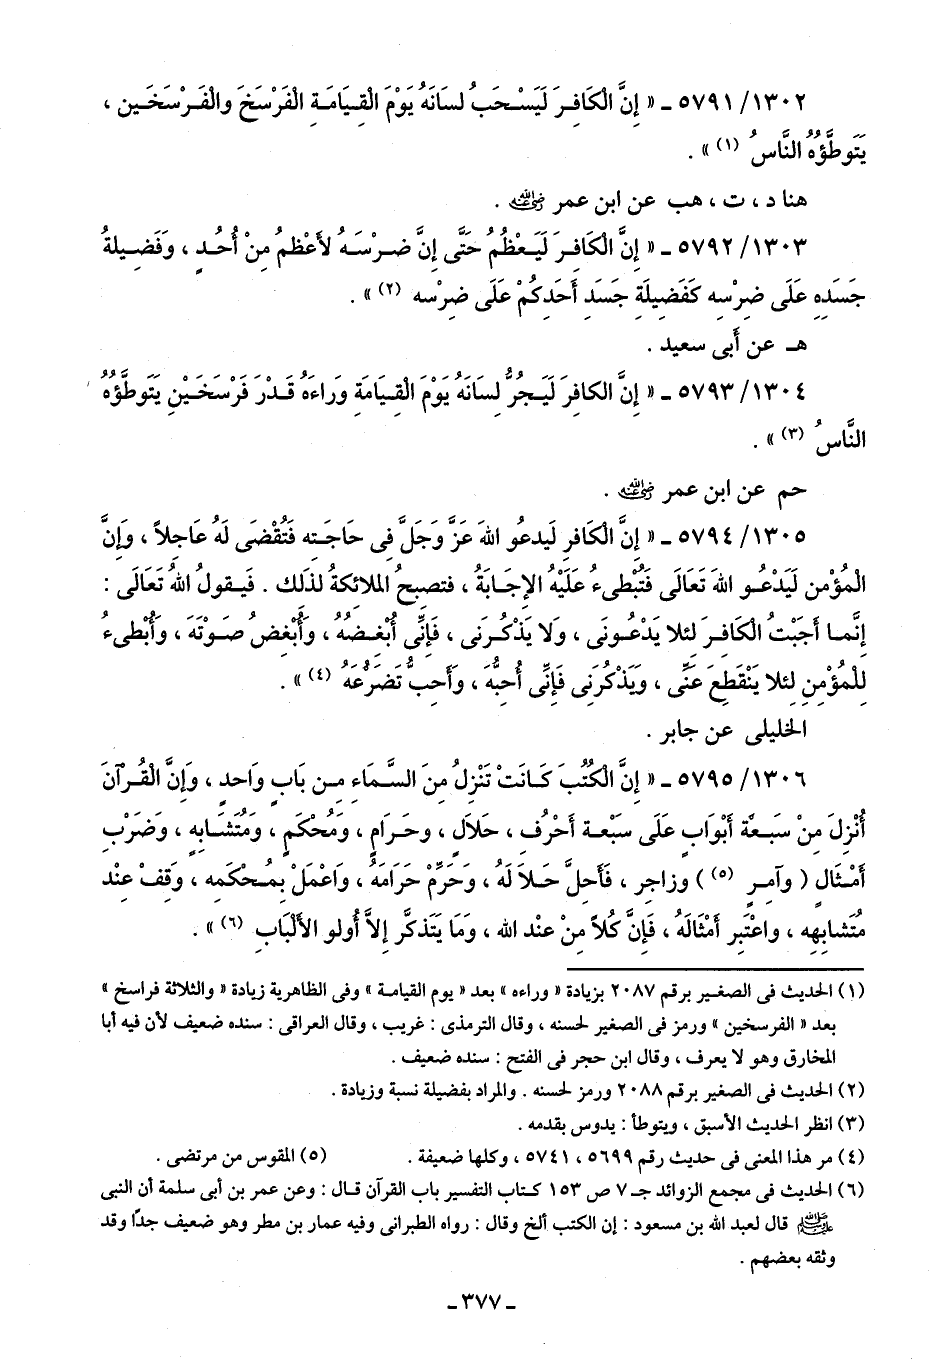 ١٣٠٢/ ٥٧٩١ ـ « إِنَّ الْكَافِرَ لَيَسْحَبُ لسَانَهُ يَوْمَ الْقِيَامَةِ الْفَرْسَخَ والْفَرْسَخَين ،
يَتَوطَّؤُهُ النَّاسُ (١) » .
هناد ، ت ، هب عن ابن عمر رضي الله عنه .
١٣٠٣/ ٥٧٩٢ ـ « إِنَّ الْكَافِرَ لَيَعْظُمُ حَتَّى إِنَّ ضِرْسَهُ لأَعْظمُ مِنْ أُحُدٍ ، وَفَضِيلةُ
جَسَدِهِ عَلَى ضِرْسِه كَفَضِيلَةِ جَسَدِ أَحَدِكُمْ عَلَى ضِرْسِه (٢) » .
هـ عن أَبى سعيد .
١٣٠٤/ ٥٧٩٣ ـ « إِنَّ الكافِرَ لَيَجُرُّ لِسَانَهُ يَوْمَ الْقِيَامَةِ وراءَهُ قَدْرَ فَرْسَخَيْنِ يَتَوطَّؤُهُ
النَّاسُ (٣) » .
حم عن ابن عمر رضي الله عنه .
١٣٠٥/ ٥٧٩٤ ـ « إِنَّ الْكَافِرِ لَيدعُو اللهَ عَزَّ وَجَلَّ فى حَاجَتِه فَتُقْضَى لَهُ عَاجِلاً ، وَإِنَّ
الْمُؤْمِن لَيَدْعُو اللهَ تَعَالَى فَتُبْطِىءُ عَلَيْهُ الإِجَابَةُ ، فتصبحُ الملائكةُ لذلك . فَيقولُ اللهُ تَعَالَى :
إِنَّمَا أَجَبْتُ الْكَافِرَ لئلا يَدْعُونِى ، وَلا يَذْكُرَنى ، فَإِنِّى أُبْغِضُهُ ، وَأُبْغِضُ صَوْتَهَ ، وَأُبْطِىءُ
لِلْمُؤْمِنِ لئلا يَنْقَطِعَ عَنِّى ، وَيَذْكُرَنِى فَإِنِّى أُحِبُّهَ ، وَأُحِبُّ تَضَرُّعَهُ (٤) » .
الخليلى عن جابر .
١٣٠٦/ ٥٧٩٥ ـ « إِنَّ الْكُتُبَ كَانَتْ تَنْزِلُ مِنَ السَّمَاءِ مِن بَابٍ وَاحدٍ ، وَإِنَّ الْقُرآنَ
أُنْزِلَ مِنْ سَبعةِ أَبْوَابٍ عَلَى سَبْعةِ أَحْرُفٍ ، حَلاَلٍ ، وحَرَامٍ ، ومُحْكَمٍ ، ومُتَشَابِهٍ ، وَضَرْبِ
أَمْثَالٍ ( وآمرٍ (٥) ) وزاجرٍ ، فَأَحِلَّ حَلاَ لَهُ ، وَحَرِّمْ حَرَامَهُ ، وَاعْمَلْ بِمُحْكَمِه ، وَقِفْ عِنْد
مُتَشابِهِه ، واعْتَبِر أَمْثَالَهُ ، فَإِنَّ كُلاً مِنْ عِنْد الله ، وَمَا يَتَذكَّر إِلاَّ أُولو الأَلْبَابِ (٦) » .
(١) الحديث فى الصغير برقم ٢٠٨٧ بزيادة « وراءه » بعد « يوم القيامة » وفى الظاهرية زيادة « والثلاثة فراسخ »
بعد « الفرسخين » ورمز فى الصغير لحسنه ، وقال الترمذى : غريب ، وقال العراقى : سنده ضعيف لأن فيه أبا
المخارق وهو لا يعرف ، وقال ابن حجر فى الفتح : سنده ضعيف .
(٢) الحديث فى الصغير برقم ٢٠٨٨ ورمز لحسنه . والمراد بفضيلة نسبة وزيادة .
(٣) انظر الحديث الأسبق ، ويتوطأ : يدوس بقدمه .
(٤) مر هذا المعنى فى حديث رقم ٥٦٩٩ ، ٥٧٤١ ، وكلها ضعيفة . (٥) المقوس من مرتضى .
(٦) الحديث فى مجمع الزوائد جـ ٧ ص ١٥٣ كتاب التفسير باب القرآن قال : وعن عمر بن أبى سلمة أن النبى
صلى الله عليه وسلم قال لعبد الله بن مسعود : إن الكتب ألخ وقال : رواه الطبرانى وفيه عمار بن مطر وهو ضعيف جدًا وقد
وثقه بعضهم .
ـ ٣٧٧ ـ